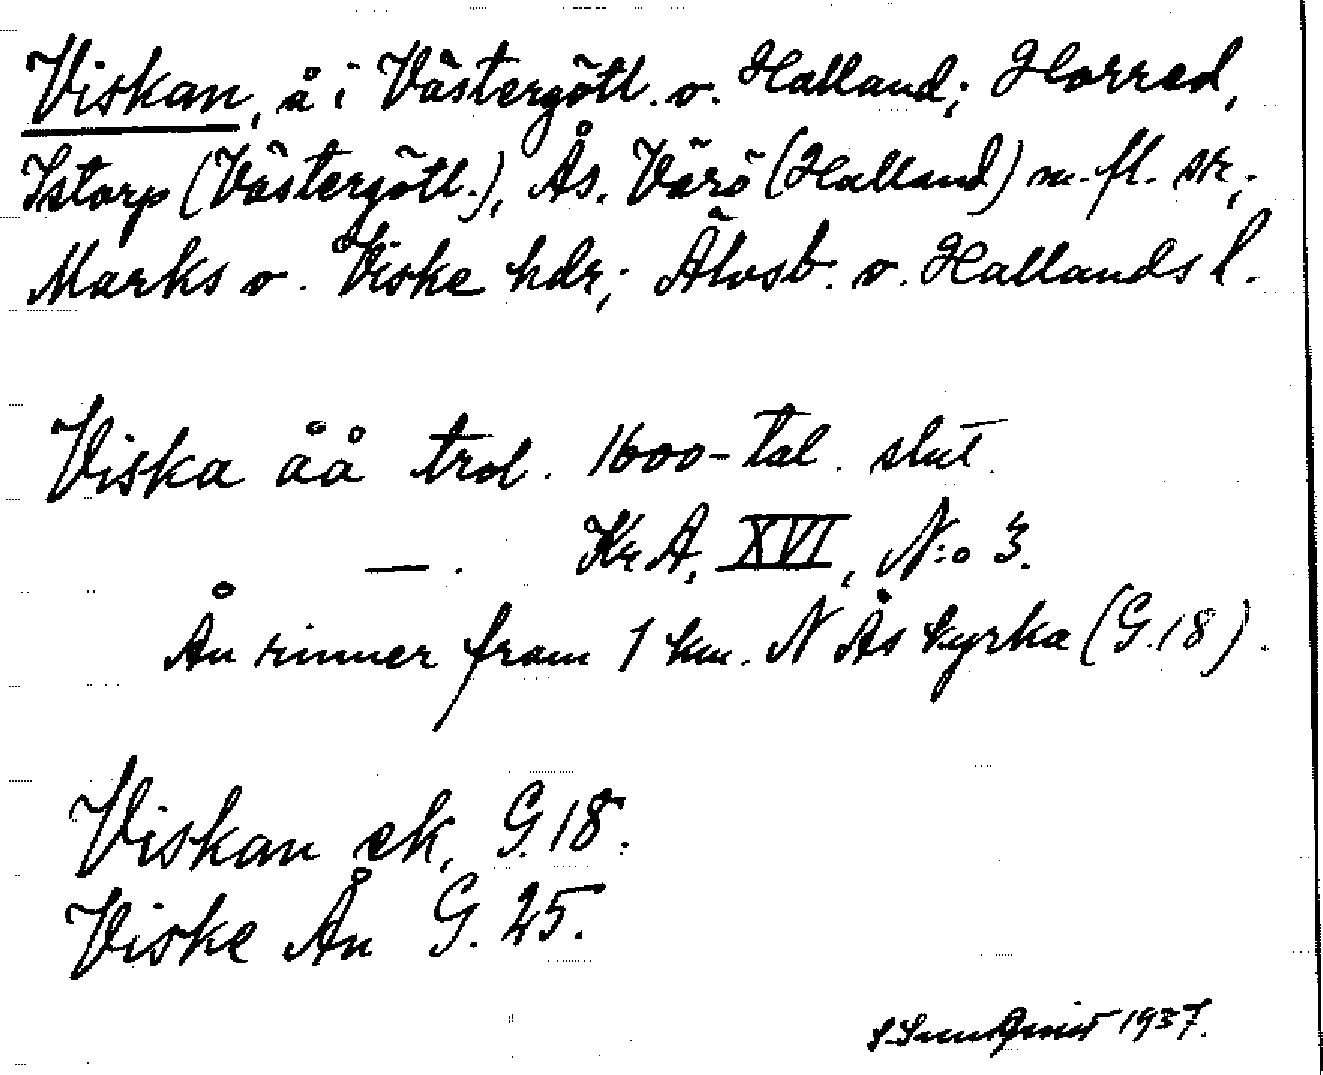 Viskan, å i Västergötl. o. Halland; Horred,
Istorp (Västergötl.), Ås, Värö (Halland) m. fl. sr;
Marks o. Viske hdr; Älvsb. o. Hallands l.
Viska åå trol. 1600-tal. slut.
—. Kr A, XVI, N:o 3.
Ån rinner fram 1 km. N Ås kyrka (G. 18).
Viskan ek, G. 18.
Viske Ån G. 25.
1937.